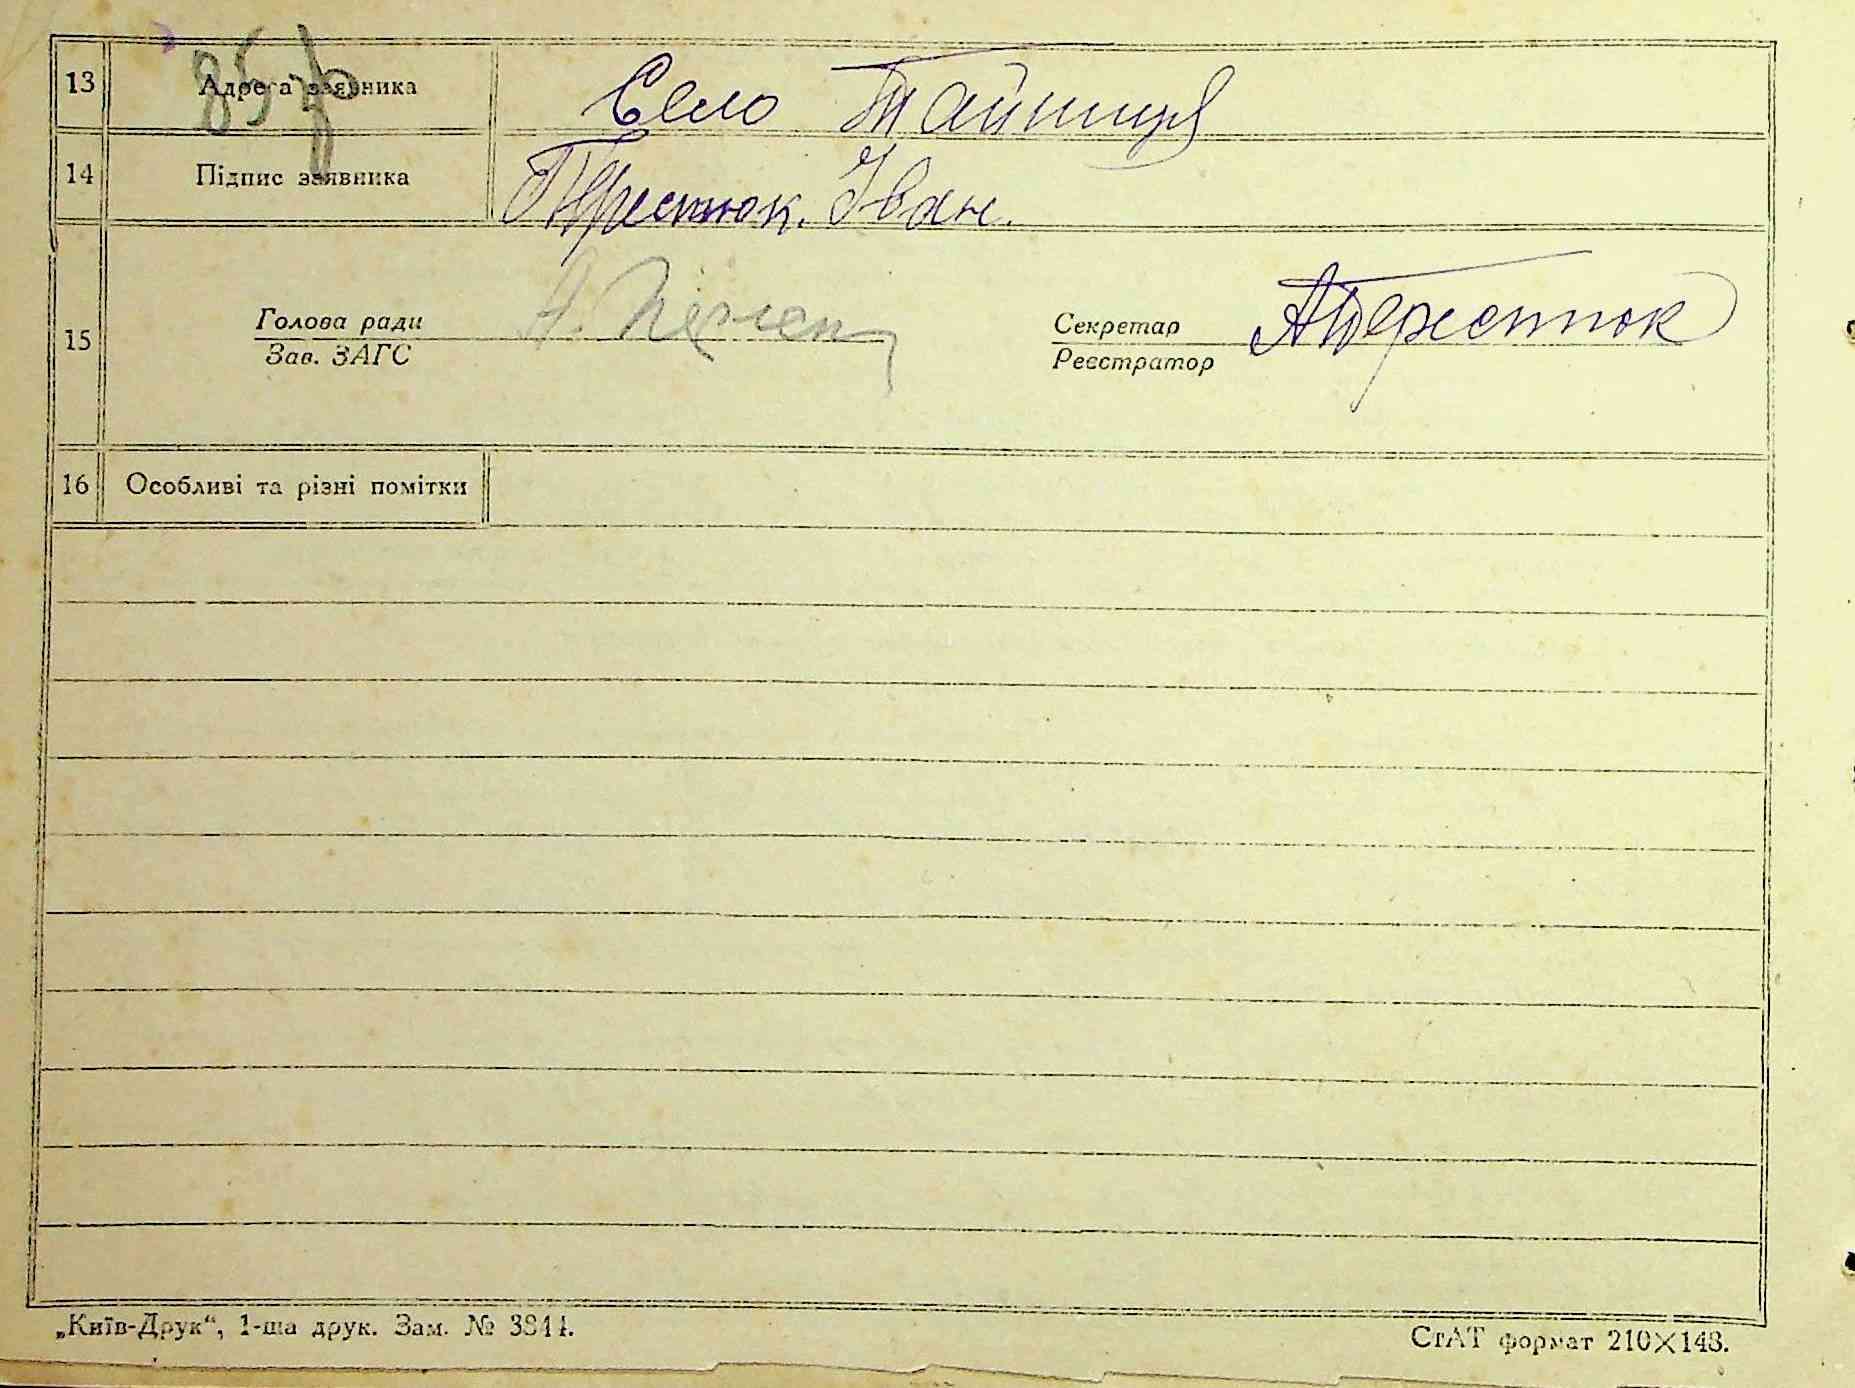 85 зв
13 Адреса заявника Село Тайниця
14 Підпис заявника Терестюк. Іван.
15 Голова ради Секретар АТерестюк
Зав. ЗАГС Реєстратор
16 Особливі та різні помітки
„Київ-Друк“, 1-ша друк. Зам. № 3844.
СтАТ формат 210×148.